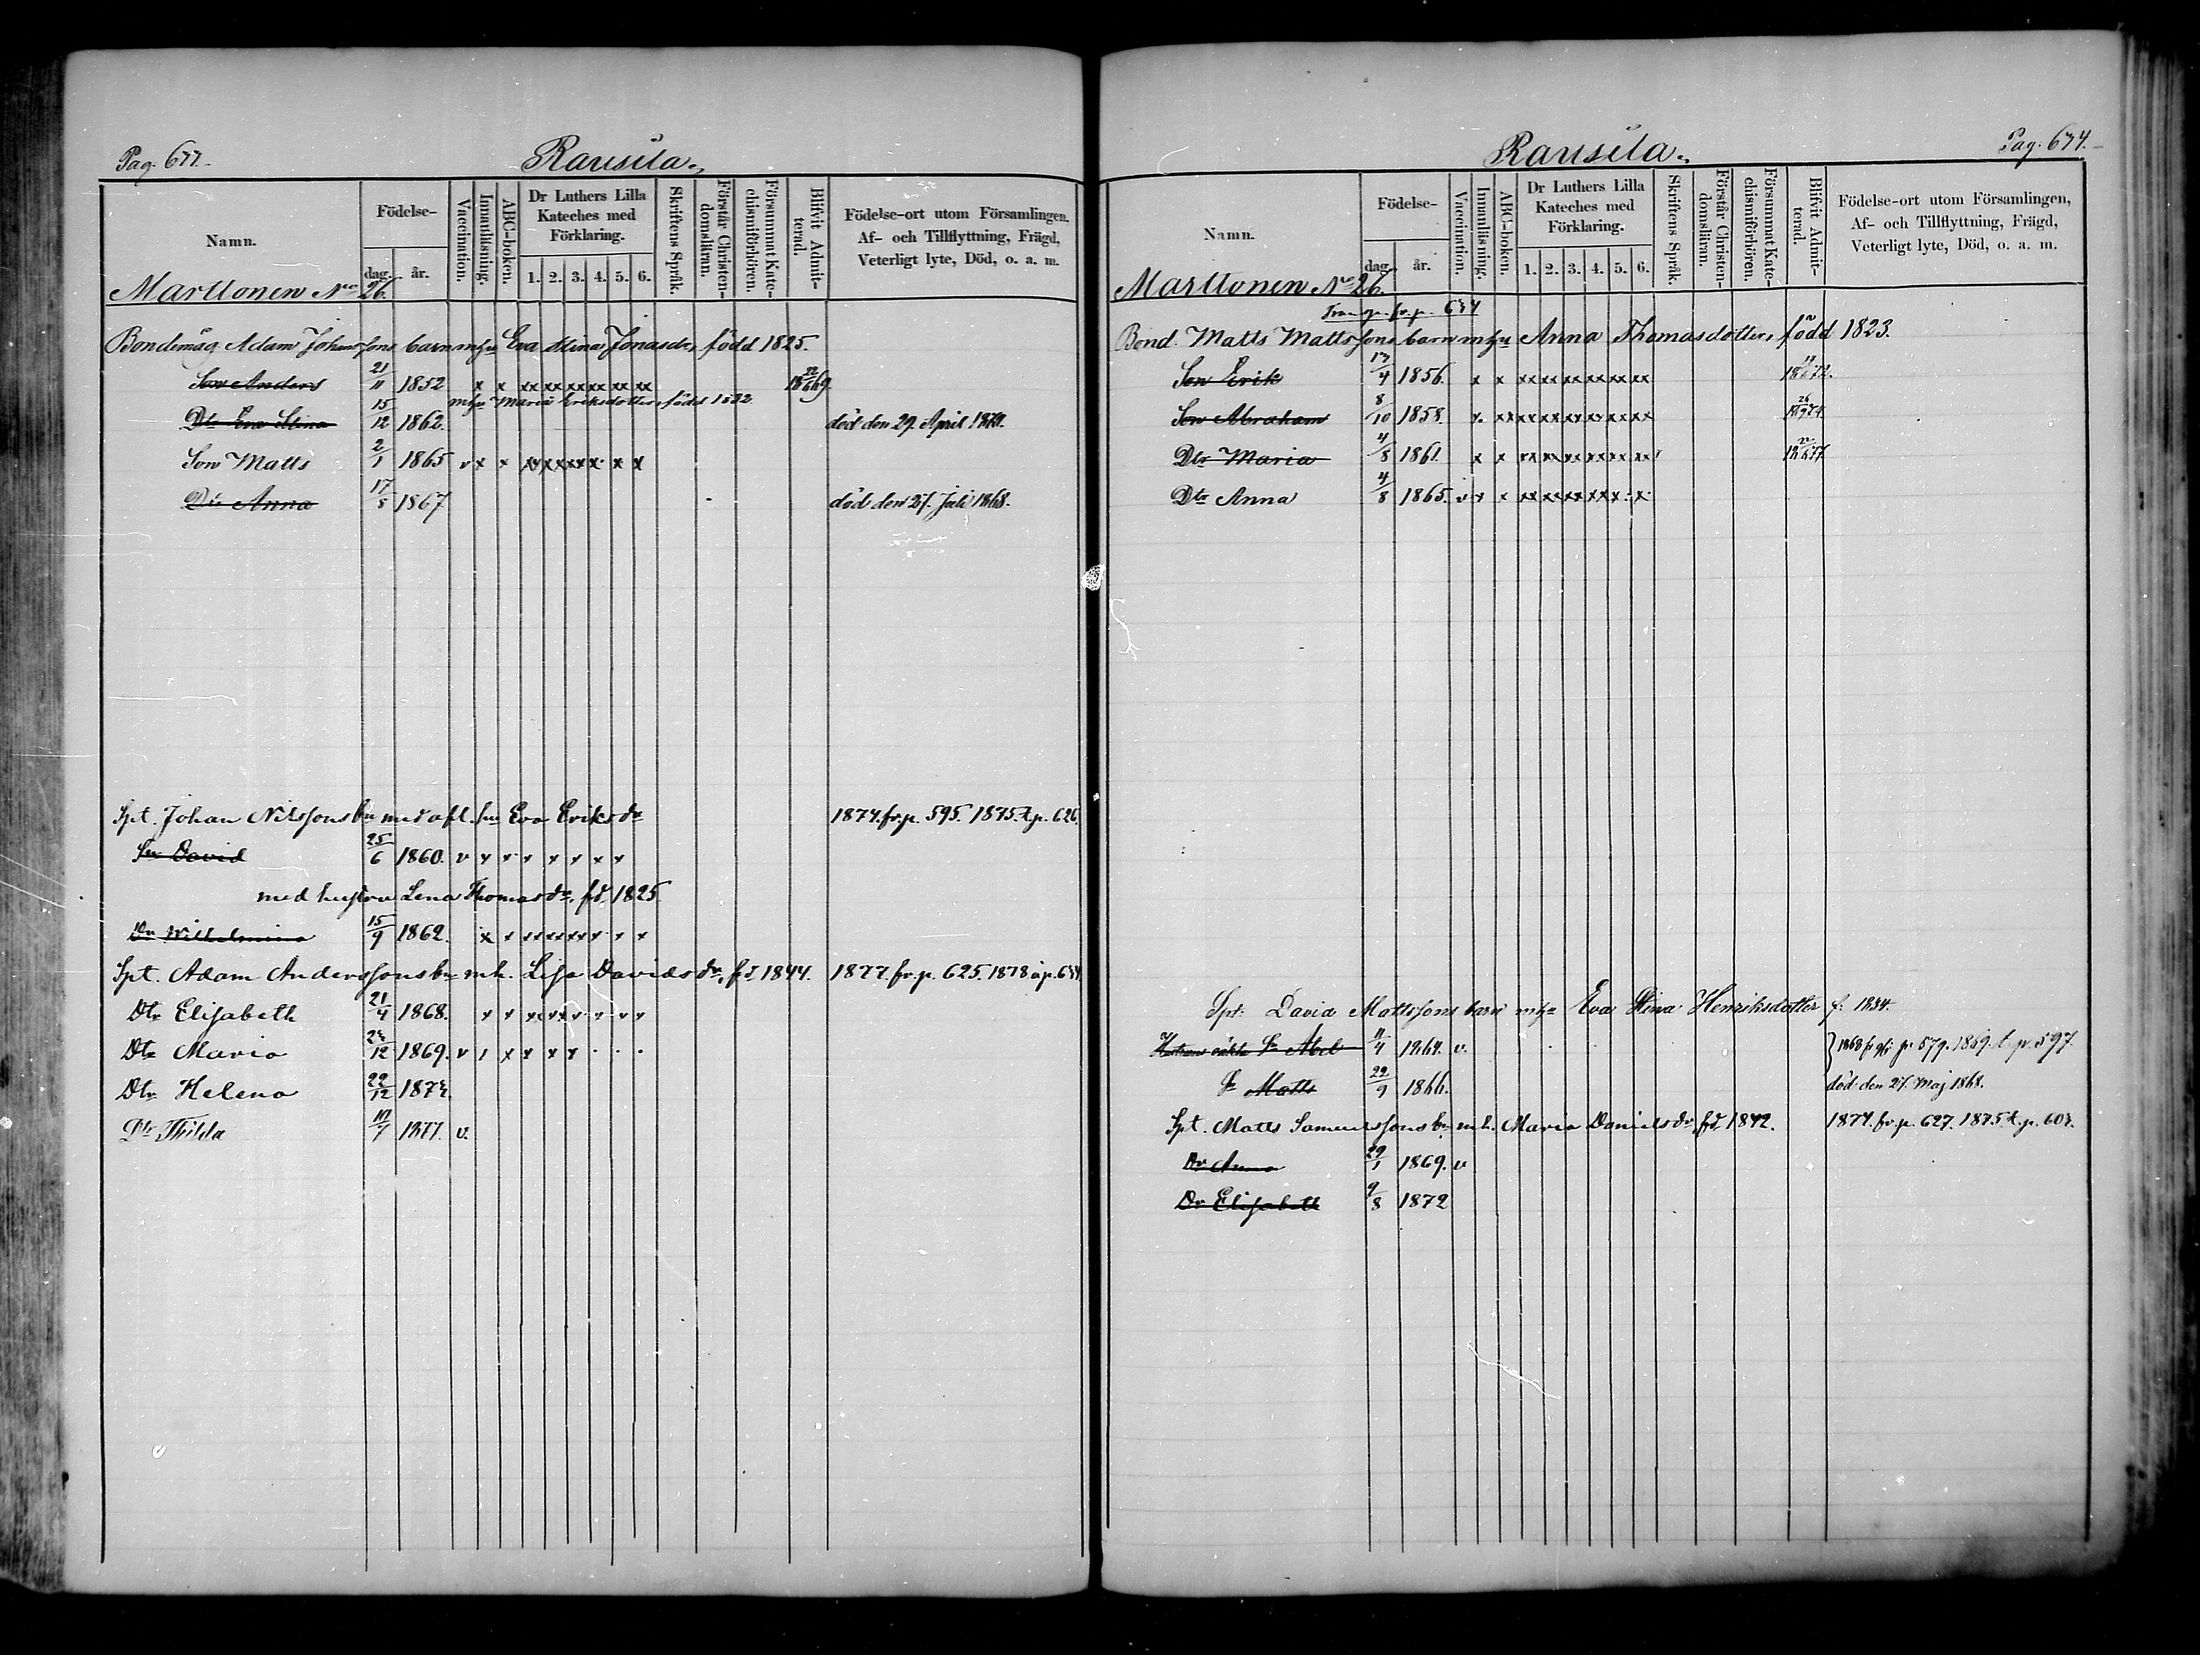 Pag. 677.
Rausila.
Namn.
Födelse-
dag.
år.
Vaccination.
Innanläsning.
ABC-boken.
Dr Luthers Lilla Kateches med Förklaring.
1. 2. 3. 4. 5. 6.
Skriftens Språk.
Förstår Christendomsläran.
Försummat Katechismiförhören.
Blifvit Admitterad.
Födelse-ort utom Församlingen, Af- och Tillflyttning, Frägd, Veterligt lyte, Död, o. a. m.
Marttonen No 26.
Bondemåg Adam Johanssons barn m hu Eva Stina Jonasdr, född 1825.
Son Anders 21/11 1852 x x xx xx xx xx xx xx
m hu Maria Eriksdotter, född 1832.
Dtr Eva Stina 15/12 1862. död den 29. April 1870.
Son Matts 2/1 1865 v x x xx xx xx x x x
Dtr Anna 17/5 1867 död den 27. Juli 1868.
Spt. Johan Nilssons bn med afl. hu Eva Eriksdr 1874. fr. p. 595. 1875. t. p. 626.
Sn David 25/6 1860. v x x x x x x x
med hustru Lena Thomasdr, fd. 1825
Dr Wilhelmina 15/9 1862. x x xx xx xx x x x
Spt. Adam Anderssons bn m h. Lisa Davidsdr, fd. 1844. 1877. fr. p. 625. 1878 å p.
Dtr Elisabeth 21/4 1868. x x x xx x x x x
Dtr Maria /12 1869. v x x x x
Dtr Helena 22/12
Dtr Thilda 10/7 1877. v.
Pag. 674.
Rausila.
Namn.
Födelse-
dag.
år.
Vaccination.
Innanläsning.
ABC-boken.
Dr Luthers Lilla Kateches med Förklaring.
1. 2. 3. 4. 5. 6.
Skriftens Språk.
Förstår Christendomsläran.
Försummat Katechismiförhören.
Blifvit Admitterad.
Födelse-ort utom Församlingen, Af- och Tillflyttning, Frägd, Veterligt lyte, Död, o. a. m.
Marttonen No 26.
Bond. Matts Mattssons barn m hu Anna Thomasdotter, född 1823.
Son Erik 17/4 1856. x x xx xx xx xx xx xx
Son Abraham 8/10 1858. x xx xx xx xx xx xx xx
Dtr Maria 4/8 1861 x x xx xx xx xx xx xx
Dtr Anna 4/8 1865. v x x xx xx xx xx x x
Spt. David Mattssons barn m hu Eva Stina Henriksdotter f. 1834.
Sn Abel 11/4 1864. v. p. 579. 1869. t. p. 597.
Sn Matts 22/9 1866. död den 27. Maj 1868.
Spt. Matts Samuelssons bn m h. Maria Danielsdr, fd. 1842. 1874. fr. p. 627. 1875. t. p.
Dr Anna 29/1 1869. v
Dr Elisabeth 9/8 1872